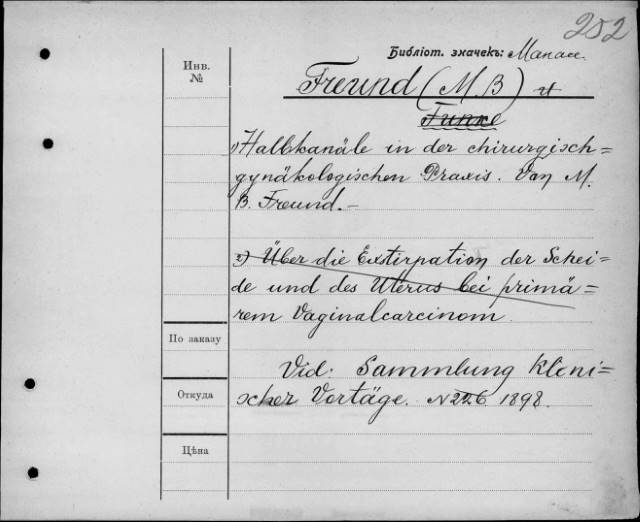 252
Библіот. значекъ: Манас.
Инв.
№
Freund (M. B) u
Funke
1) Halbkanäle in der chirurgisch=
gynäkologischen Praxis. Von M.
B. Freund. –
2) Über die Exstirpation der Schei=
de und des Uterus bei primä=
rem Vaginalcarcinom.
По заказу
Vid: Sammlung klini=
scher Vortäge. N 226 1898.
Откуда
Цѣна